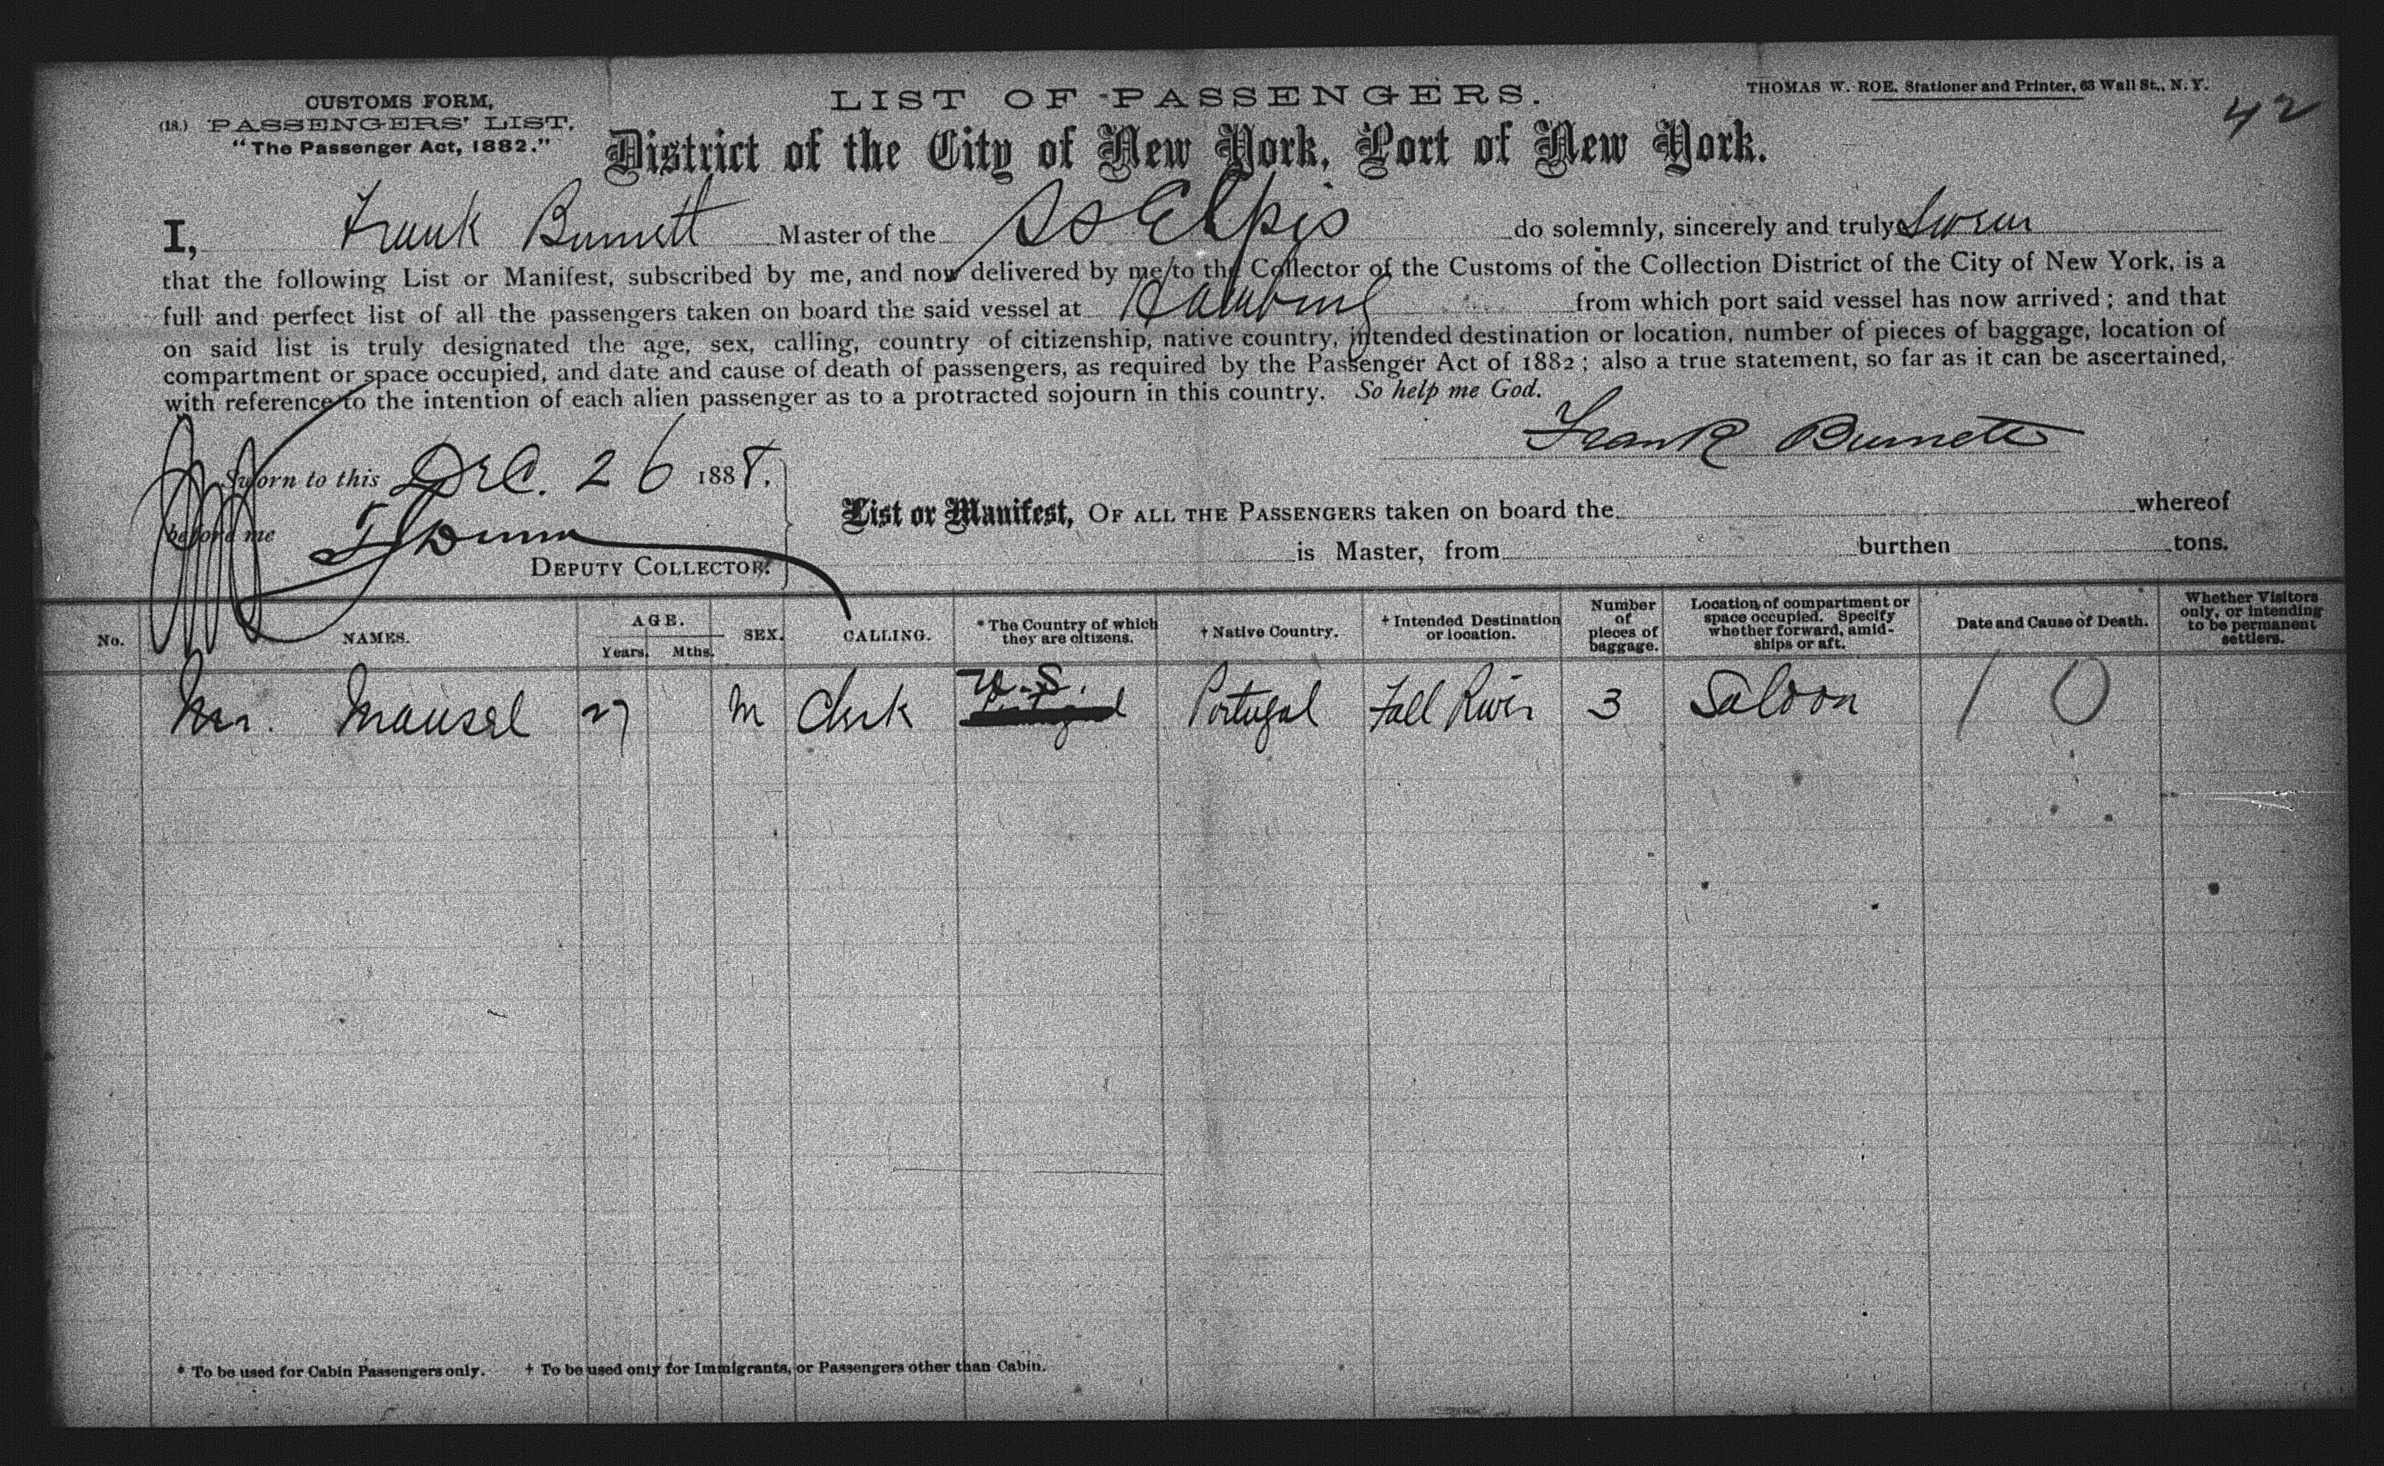 CUSTOMS FORM,
(18.) PASSENGERS' LIST.
"The Passenger Act, 1882."
LIST OF PASSENGERS.
THOMAS W. ROE, Stationer and Printer, 63 Wall St., N. Y.
42
District of the City of New York, Port of New York.
I, Frank Burnett Master of the SS Elpis do solemnly, sincerely and truly Swear
that the following List or Manifest, subscribed by me, and now delivered by me to the Collector of the Customs of the Collection District of the City of New York, is a
full and perfect list of all the passengers taken on board the said vessel at Hamburg from which port said vessel has now arrived; and that
on said list is truly designated the age, sex, calling, country of citizenship, native country, intended destination or location, number of pieces of baggage, location of
compartment or space occupied, and date and cause of death of passengers, as required by the Passenger Act of 1882; also a true statement, so far as it can be ascertained,
with reference to the intention of each alien passenger as to a protracted sojourn in this country. So help me God.
Frank Burnett
Sworn to this Dec. 26 1888.
before me
DEPUTY COLLECTOR.
List or Manifest, OF ALL THE PASSENGERS taken on board the whereof
is Master, from burthen tons.
No. NAMES. AGE. Years. Mths. SEX. CALLING. * The Country of which they are citizens. † Native Country. † Intended Destination or location. Number of pieces of baggage. Location of compartment or space occupied. Specify whether forward, amidships or aft. Date and Cause of Death. Whether Visitors only, or intending to be permanent settlers.
Mr. Mansel 27 M Clerk U.S. Portugal Portugal Fall River 3 Saloon 1 0
* To be used for Cabin Passengers only. † To be used only for Immigrants, or Passengers other than Cabin.